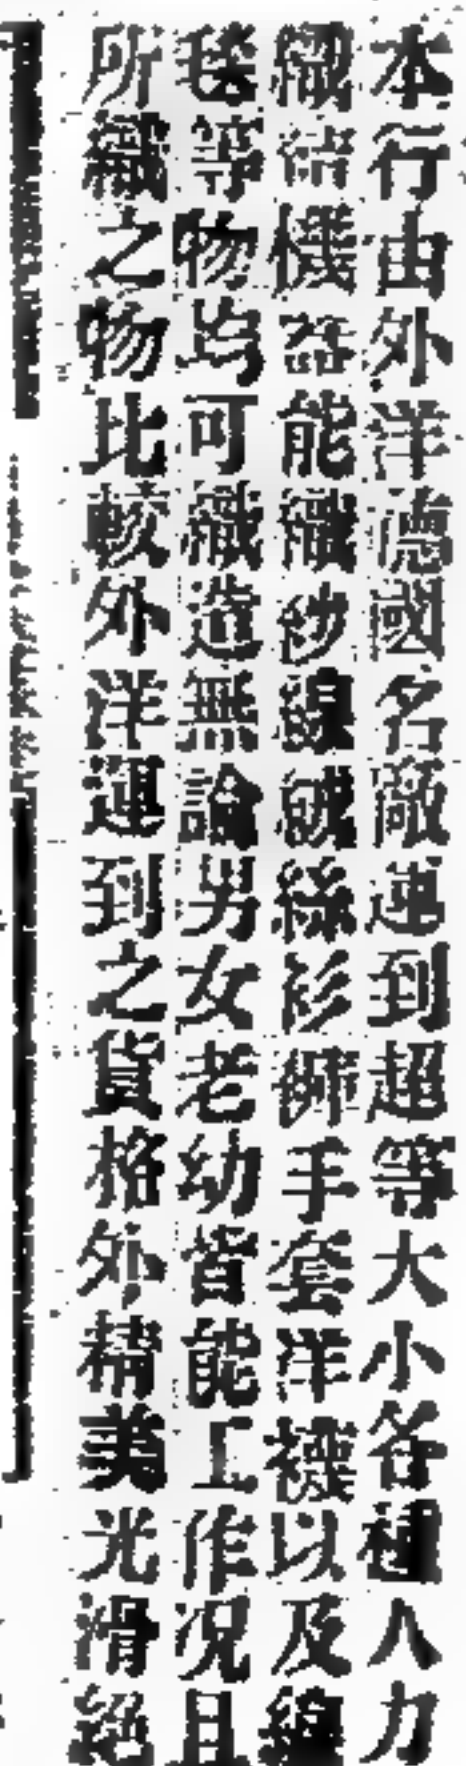 本行由外洋德國名廠運到超等大小各種人力
織結機器能織紗線絨絲衫褲手套洋襪以及線
毯等物均可織造無論男女老幼皆能工作况且
所織之物比較外洋運到之貨格外精美光滑絕